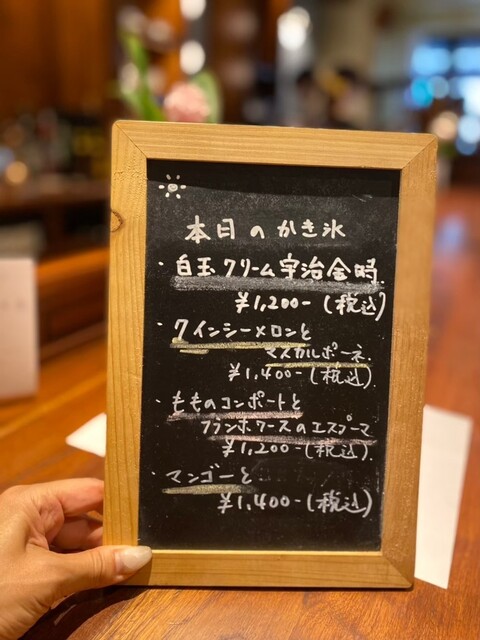 本日のかき氷
・白玉クリーム宇治金時
¥1,200-(税込)
・クインシーメロンと
マスカルポーネ
¥1,400-(税込)
・もものコンポートと
フランボワーズのエスプーマ
¥1,200-(税込)
・マンゴーと
¥1,400-(税込)